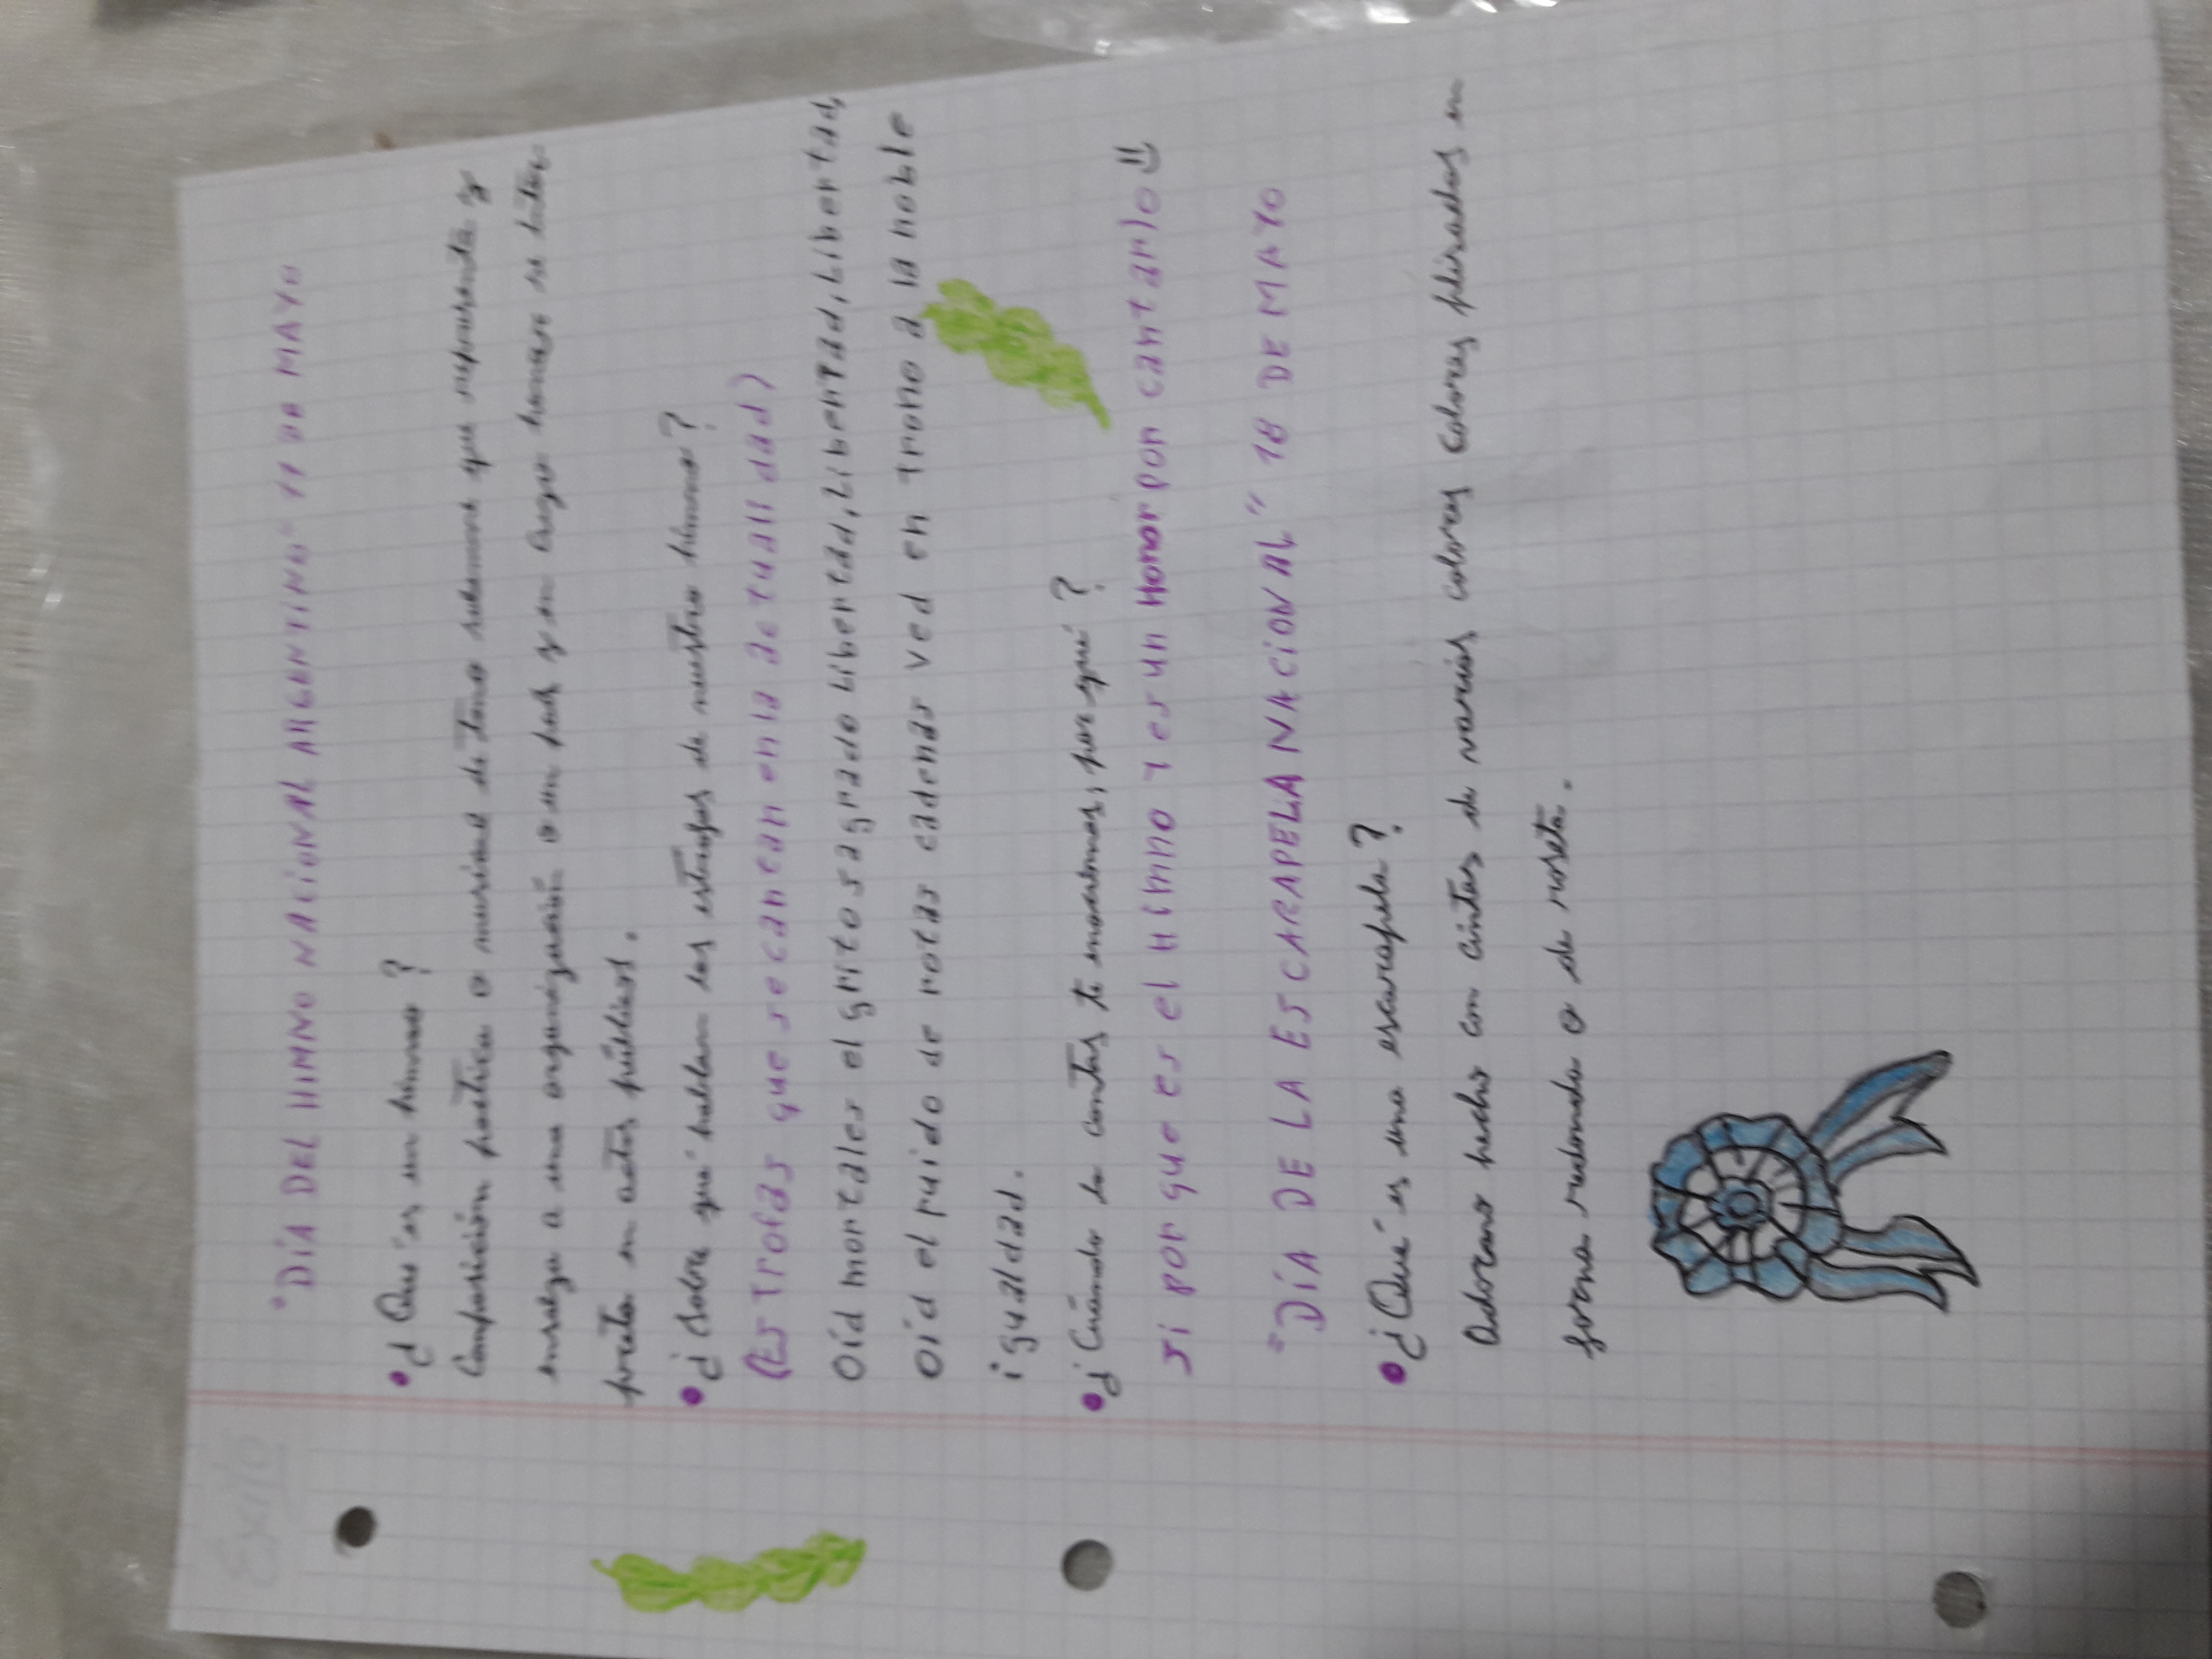 Exito
"DÍA DEL HIMNO NACIONAL ARGENTINO" 11 DE MAYO
• ¿Que es un himno?
Composición poética o musical de tono solemne que representa y
ensalza a una organización o un país y en cuyo honor se
preta en actos públicos.
• ¿Sobre qué hablan las estrofas de nuestro himno?
(Estrofas que se cantan en la actualidad)
Oíd mortales el grito sagrado Libertad, Libertad, Libertad,
Oíd el ruido de rotas cadenas ved en trono a la noble
igualdad.
• ¿Cuándo lo cantas te emocionas, por qué?
si porque es el Himno y es un Honor por cantarlo =)
"DÍA DE LA ESCARAPELA NACIONAL" 18 DE MAYO
• ¿Qué es una escarapela?
Adorno hecho con cintas de varios colores colores plisados en
forma redonda o de roseta.